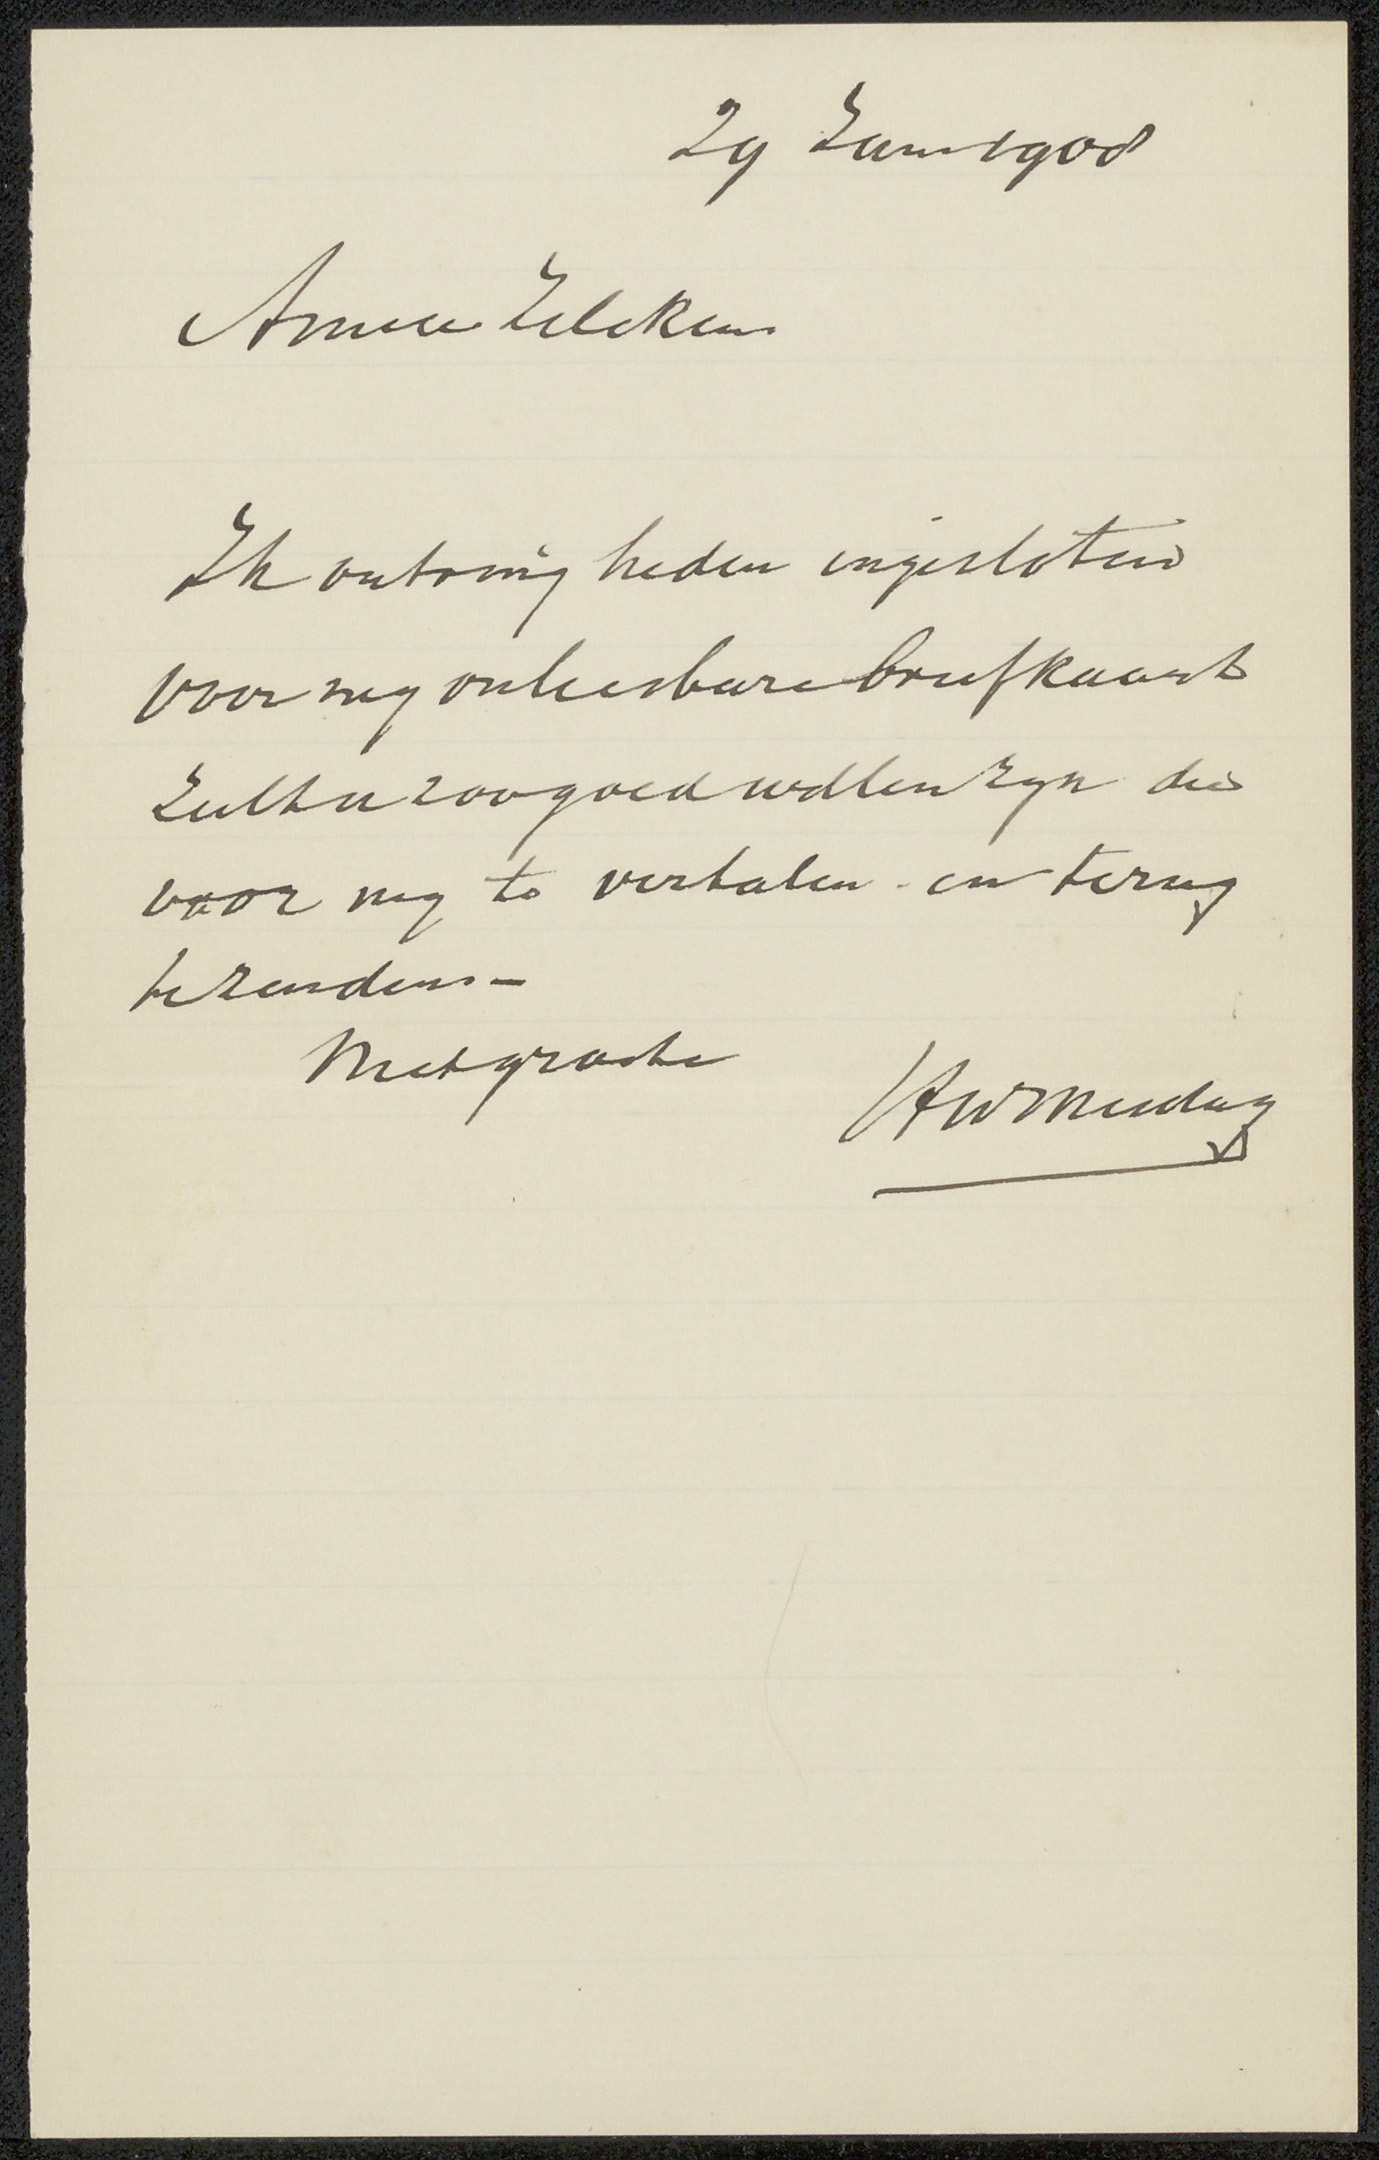 29 Jan 1908
Amice Zilcken
Ik ontving heden ingesloten
voor my onleesbare briefkaart
Zult u zoo goed willen zyn die
voor my te vertalen en terug
te zenden –
Met groete
HWMesdag